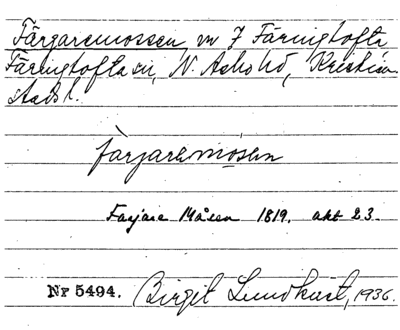 Färgaremossen, vn 7 Färingtofta
Färingtofta sn, N. Åsbo hd, Kristian-
stads l.
farjaremosen
Farjare Måsen 1819. akt 23.
Nr 5494. Birgit Lundkvist, 1936.